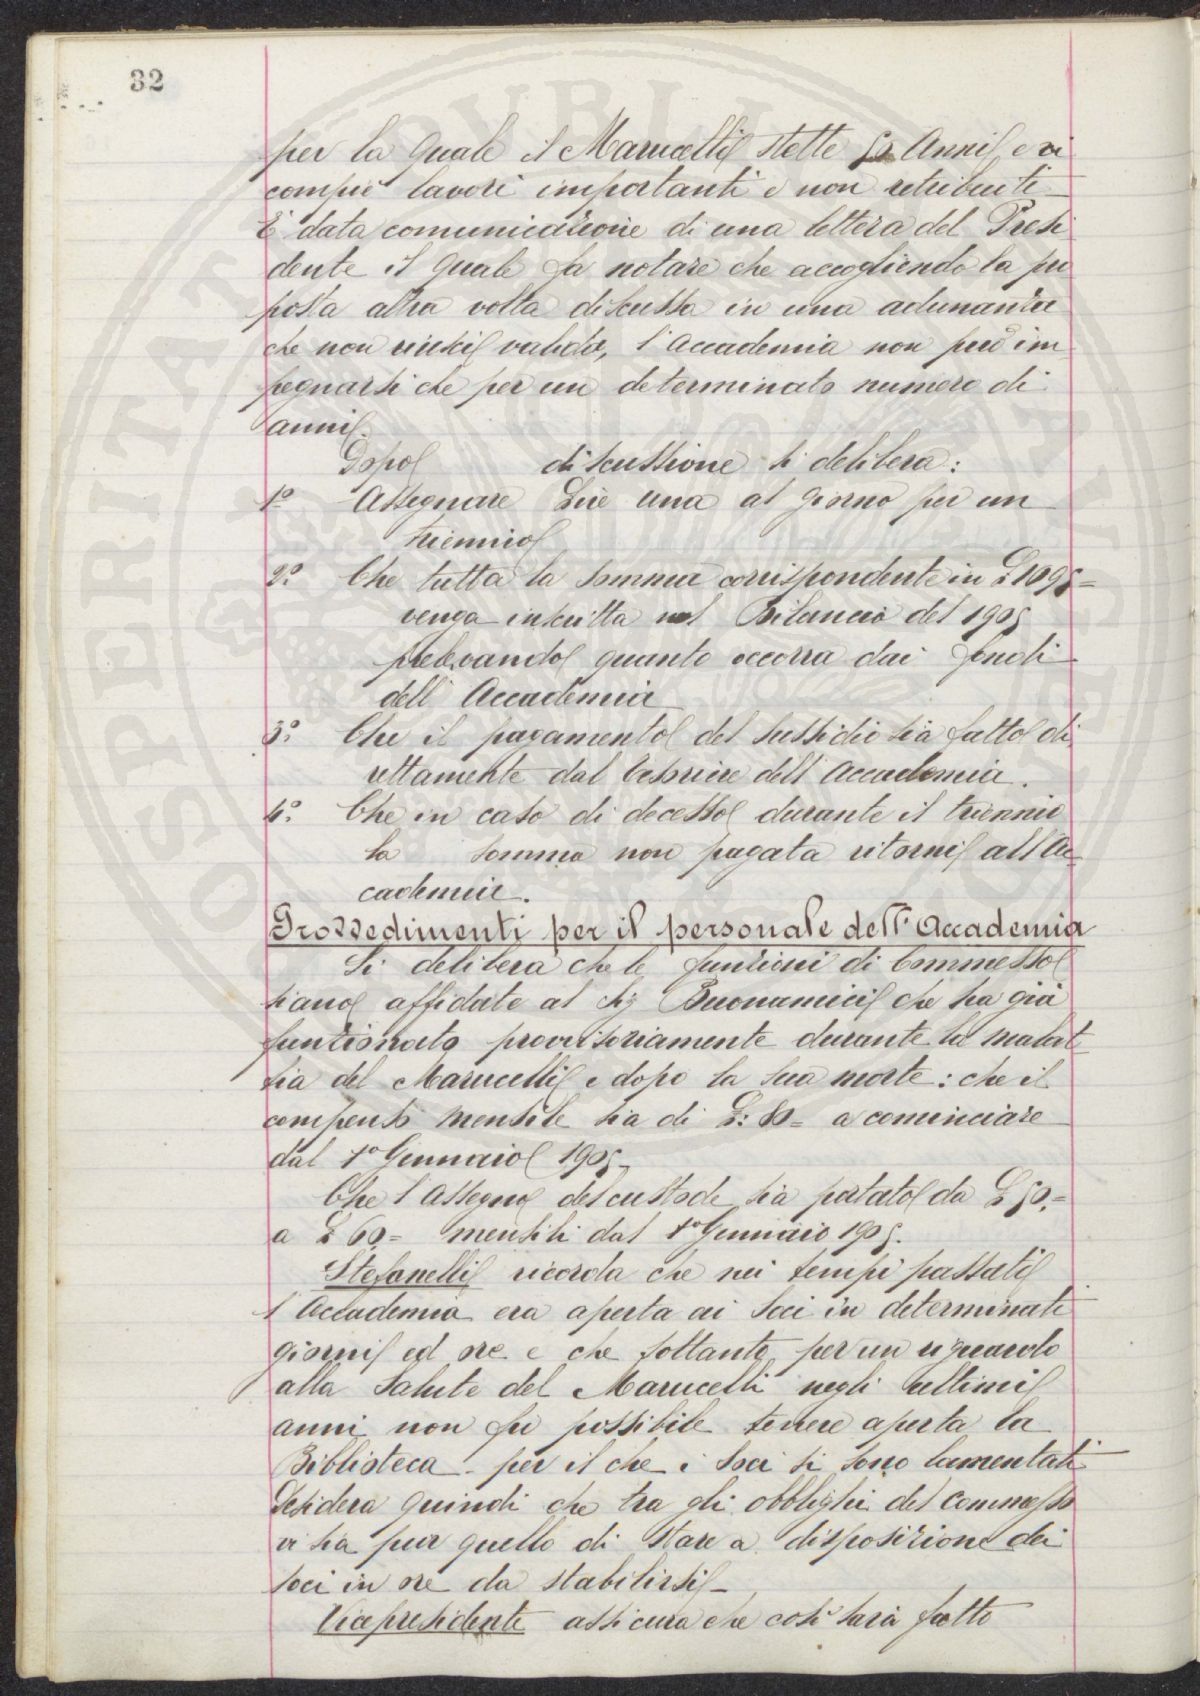 32
per la quale il Marucelli stette 50 Anni e vi
compiè lavori importanti e non retribuiti
È data comunicazione di una lettera del Presi
dente il quale fa notare che accogliendo la pro
posta altra volta discussa in una adunanza
che non riuscì valida, l'Accademia non può im
pegnarsi che per un determinato numero di
anni.
Dopo discussione si delibera:
1º Assegnare Lire una al giorno per un
triennio
2º. Che tutta la somma corrispondente in £ 1095=
venga inscritta nel Bilancio del 1905
prelevando quanto occorra dai fondi
dell'Accademia
3º. Che il pagamento del sussidio sia fatto di
rettamente dal Tesoriere dell'Accademia.
4º. Che in caso di decesso durante il triennio
la somma non pagata ritorni all'Ac-
cademia.
Provvedimenti per il personale dell'Accademia
Si delibera che le funzioni di Commesso
siano affidate al Sig Buonamici che ha già
funzionato provvisoriamente durante la malat
tia del Marucelli e dopo la sua morte: che il
compenso mensile sia di £: 80= a cominciare
dal 1º Gennaio 1905-
Che l'assegno del custode sia portato da £ 50.=
a £ 60= mensili dal 1º Gennaio 1905.
Stefanelli ricorda che nei tempi passati
l'Accademia era aperta ai Soci in determinati
giorni ed ore e che soltanto per un riguardo
alla salute del Marucelli negli ultimi
anni non fu possibile tenere aperta la
Biblioteca - per il che i Soci si sono lamentati
Desidera quindi che tra gli obblighi del commesso
vi sia pur quello di stare a disposizione dei
soci in ore da stabilirsi-
Vicepresidente assicura che così sarà fatto
SPERITAT PVBLI